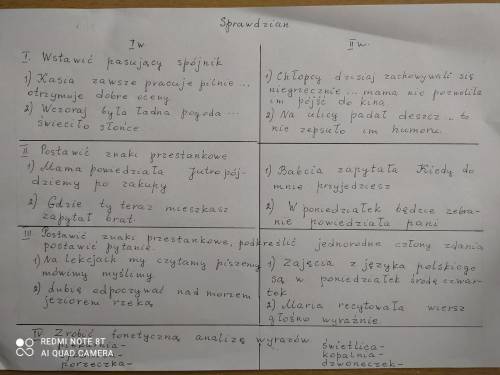 Sprawdzian
I w.
II w.
I. Wstawić pasujący spójnik
1) Kasia zawsze pracuje pilnie ...
otrzymuje dobre oceny
2) Wczoraj była ładna pogoda ...
świeciło słońce
1) Chłopcy dzisiaj zachowywali się
niegrzecznie ... mama nie pozwoliła
im pójść do kina
2) Na ulicy padał deszcz .. to
nie zepsuło im humoru.
II Postawić znaki przestankowe
1) Mama powiedziała Jutro pój-
dziemy po zakupy
2) Gdzie ty teraz mieszkasz
zapytał brat.
1) Babcia zapytała Kiedy do
mnie przyjedziesz
2) W poniedziałek będzie zebra-
nie powiedziała pani
III Postawić znaki przestankowe, podkreślić jednorodne człony zdania
postawić pytanie.
1) Na lekcjach my czytamy piszemy
mówimy myślimy.
2) Lubię odpoczywać nad morzem
jeziorem rzeką
1) Zajęcia z języka polskiego
są w poniedziałek środę czwar-
tek
2) Maria recytowała wiersz
głośno wyraźnie.
IV Zrobić fonetyczną analizę wyrazów
porzeczka-
świetlica-
kopalnia-
dzwoneczek-
REDMI NOTE 8T
AI QUAD CAMERA